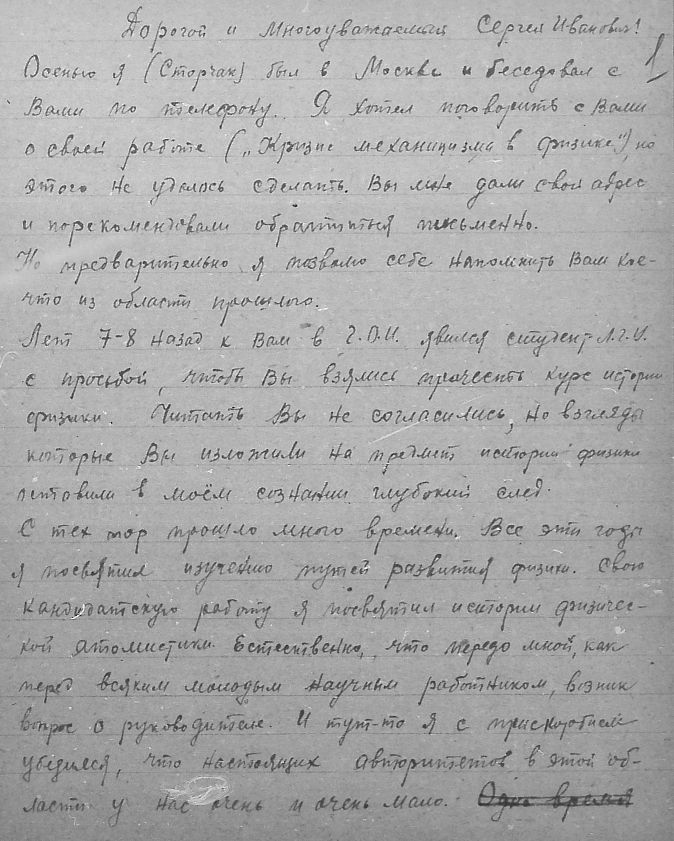 Дорогой и Многоуважаемый Сергей Иванович!
1
Осенью я (Сторчак) был в Москве и беседовал с
Вами по телефону. Я хотел поговорить с Вами
о своей работе („Кризис механицизма в физике“), но
этого не удалось сделать. Вы мне дали свой адрес
и порекомендовали обратиться письменно.
Но предварительно я позволю себе напомнить Вам кое-
что из области прошлого.
Лет 7-8 назад к Вам в Г.О.И. явился студент Л.Г.У.
с просьбой, чтобы Вы взялись прочесть курс истории
физики. Читать Вы не согласились, но взгляды
которые Вы изложили на предмет истории физики
оставили в моём сознании глубокий след.
С тех пор прошло много времени. Все эти годы
я посвятил изучению путей развития физики. Свою
кандидатскую работу я посвятил истории физичес-
кой атомистики. Естественно, что передо мной, как
перед всяким молодым научным работником, возник
вопрос о руководителе. И тут-то я с прискорбием
убедился, что настоящих авторитетов в этой об-
ласти у нас очень и очень мало. Одно время